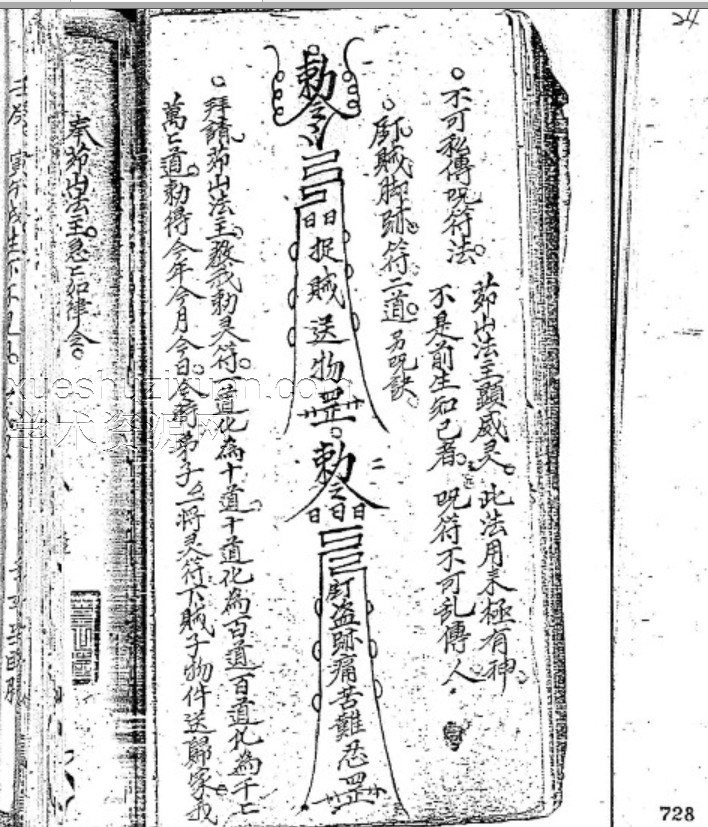 24
不可私傳咒符法。
茆山法主顯威灵。此法用来極有神。
不是前生知己者。咒符不可乱傳人。
賊脚跡符二道。另咒訣。
勅令
日日
捉賊送物罡
勅令
日晶日
釘盗跡痛苦難忍罡
拜請茆山法主。教我勅灵符。一道化為十道十道化為百道百道化為千亡
萬亡道。勅得今年今月今日今時弟子厶將灵符下賊子物件送歸家我
奉茆山法主。急亡如律令。
xueshuziyuan.com
学术资源网
728